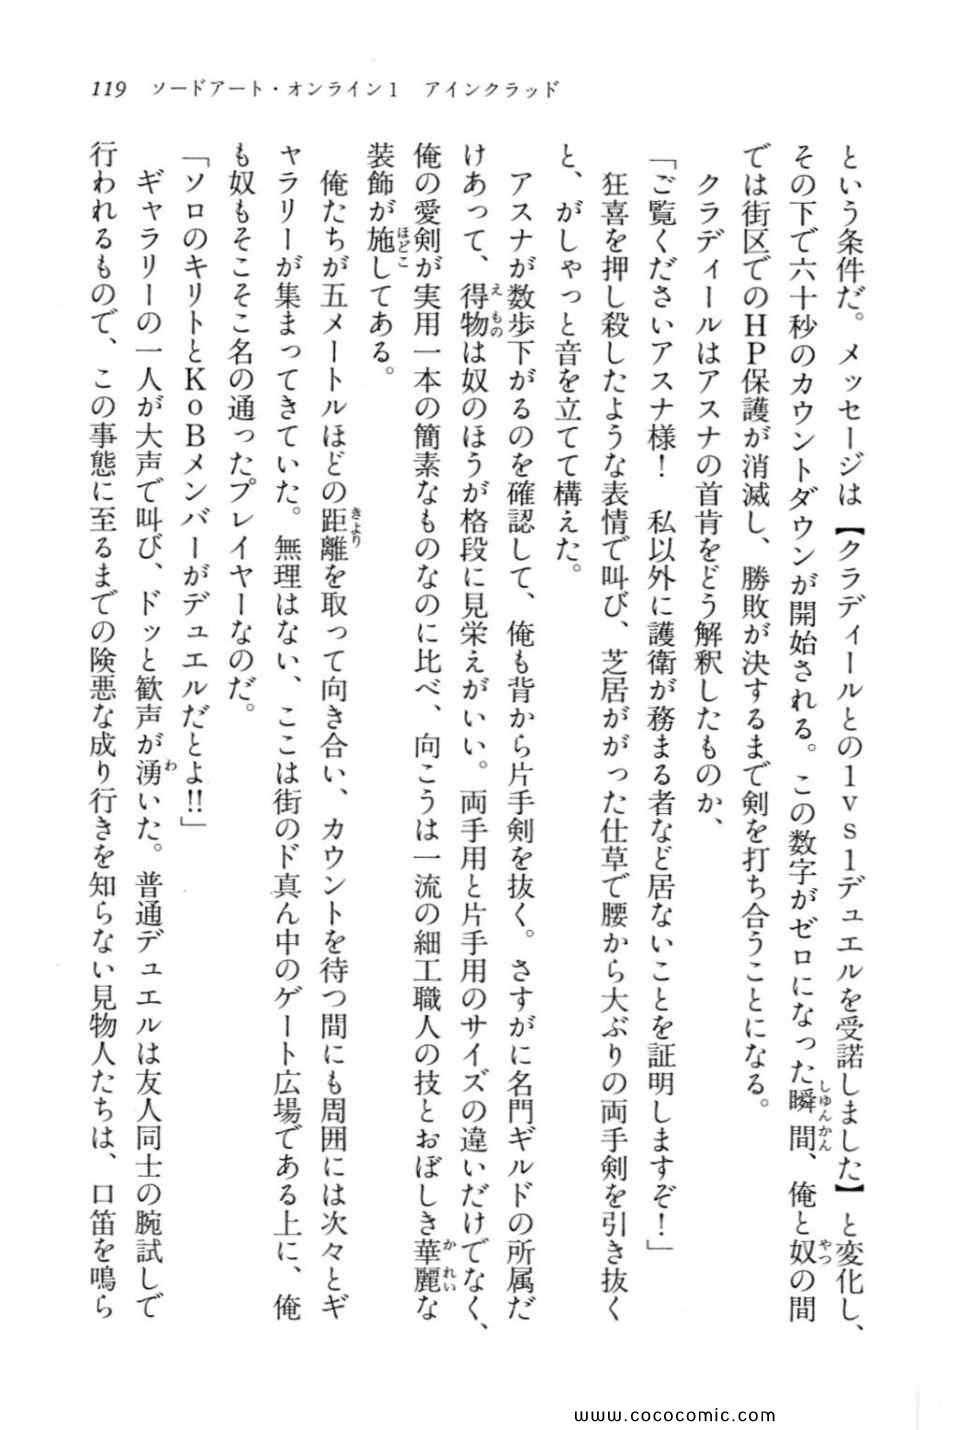 119　ソードアート・オンライン1　アインクラッド
という条件だ。メッセージは【クラディールとの1vs1デュエルを受諾しました】と変化し、
その下で六十秒のカウントダウンが開始される。この数字がゼロになった瞬間、俺と奴の間
では街区でのHP保護が消滅し、勝敗が決するまで剣を打ち合うことになる。
　クラディールはアスナの首肯をどう解釈したものか、
「ご覧くださいアスナ様！　私以外に護衛が務まる者など居ないことを証明しますぞ！」
　狂喜を押し殺したような表情で叫び、芝居ががった仕草で腰から大ぶりの両手剣を引き抜く
と、がしゃっと音を立てて構えた。
　アスナが数歩下がるのを確認して、俺も背から片手剣を抜く。さすがに名門ギルドの所属だ
けあって、得物は奴のほうが格段に見栄えがいい。両手用と片手用のサイズの違いだけでなく、
俺の愛剣が実用一本の簡素なものなのに比べ、向こうは一流の細工職人の技とおぼしき華麗な
装飾が施してある。
　俺たちが五メートルほどの距離を取って向き合い、カウントを待つ間にも周囲には次々とギ
ャラリーが集まってきていた。無理はない、ここは街のド真ん中のゲート広場である上に、俺
も奴もそこそこ名の通ったプレイヤーなのだ。
「ソロのキリトとKoBメンバーがデュエルだとよ!!」
　ギャラリーの一人が大声で叫び、ドッと歓声が湧いた。普通デュエルは友人同士の腕試しで
行われるもので、この事態に至るまでの険悪な成り行きを知らない見物人たちは、口笛を鳴ら
www.cococomic.com